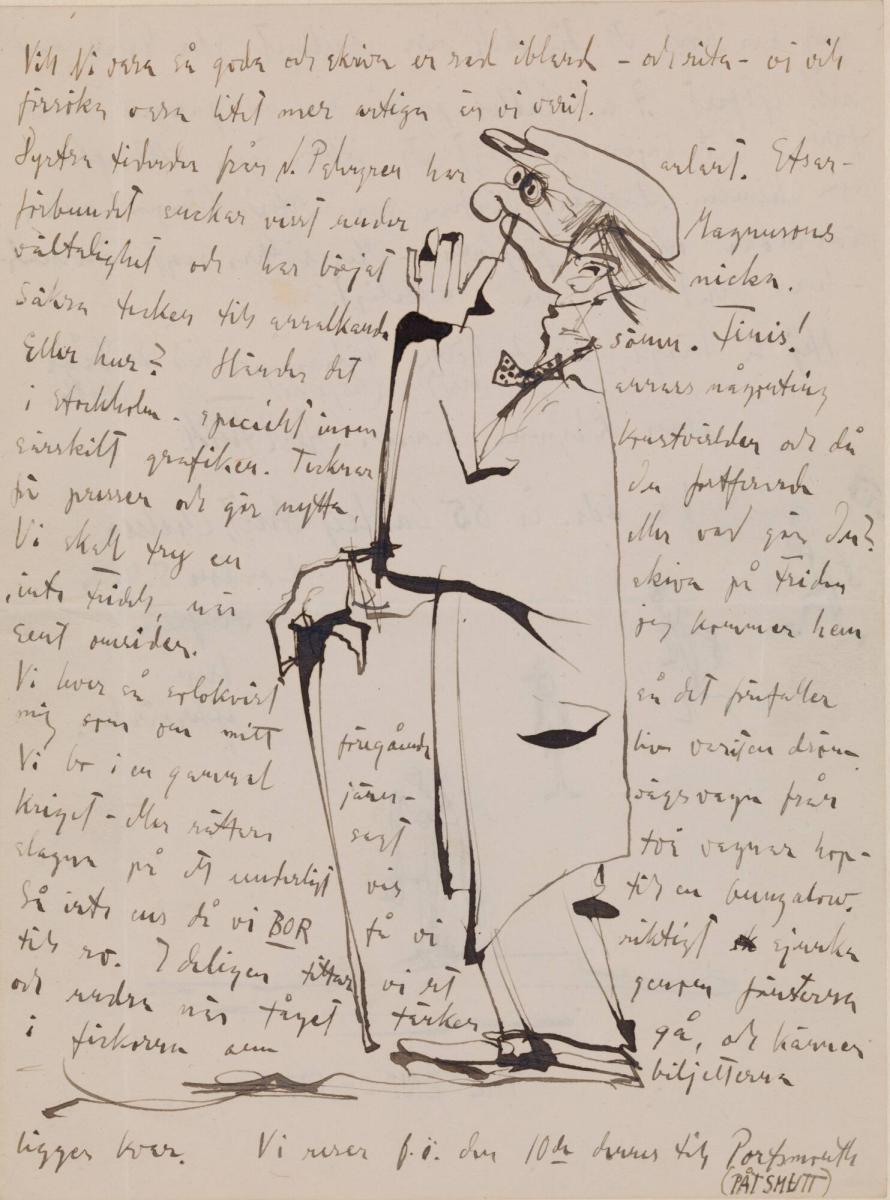 Vill Ni vara så goda och skriva en rad ibland - och rita - vi vill
försöka vara litet mer artiga än vi varit.
Dystra tidender från N. har anlänt. Etsar-
förbundet suckar visst under Magnusons
vältalighet och har börjat nicka.
Säkra tecken till annalkande sömn. Finis!
Eller hur? Händer det annars någonting
i Stockholm - speciellt inom konstvärlden och då
särskilt grafiken. Tecknar du fortfarande
för pressen och gör nytta, eller vad gör du?
Vi skall fly en skiva på Friden
, inte Fridell, när jag kommer hem
sent omsider.
Vi lever så avlokvist så det förefaller
mig som om mitt föregående liv varit en dröm.
Vi bo i en gammal järn-vägsvagn från
Kriget - eller rättare sagt två vagnar hop-
slagna på ett underligt vis till en bungalow.
Så inte ens då vi BOR få vi riktigt sjunka
till ro. Ideligen tittar vi ut genom fönstren
och undra när tåget tänker gå, och känner
i fickorna om biljetterna
ligger kvar. Vi reser f.ö. den 10de dennes till Portsmouth
(PÅTSMUTT)